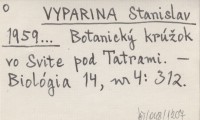 VYPARINA Stanislav
1959... Botanický krúžok
vo Svite pod Tatrami. —
Biológia 14, nr 4: 312.